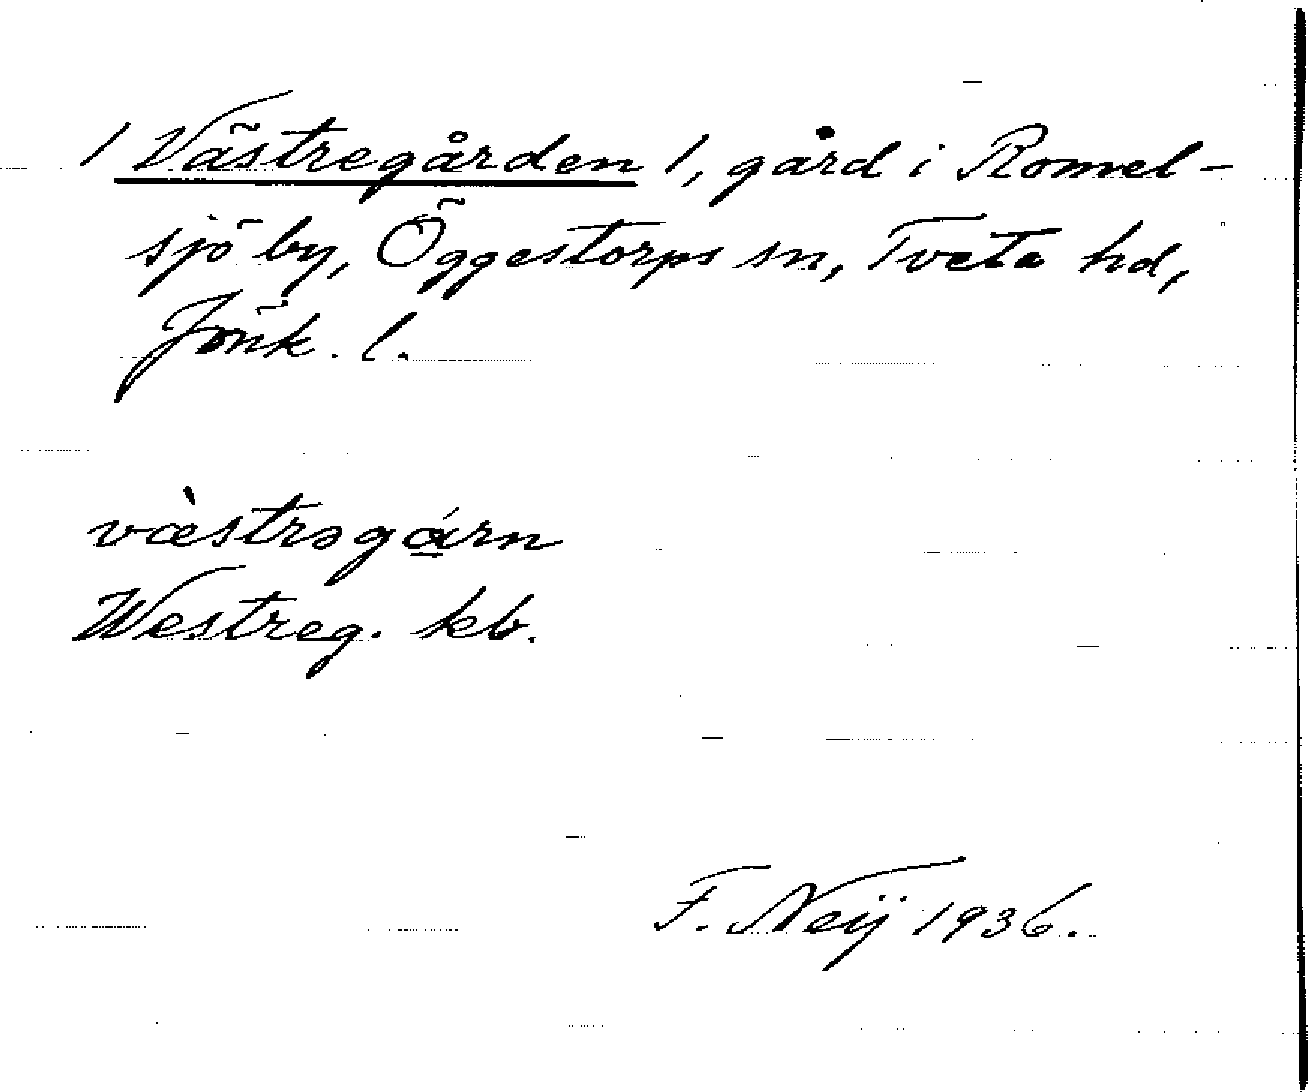 / Västregården /, gård i Romel-
sjö by, Öggestorps sn, Tveta hd,
Jönk. l.
væ̀strəgɑ́rn
Westreg. kb.
F. Neij 1936.